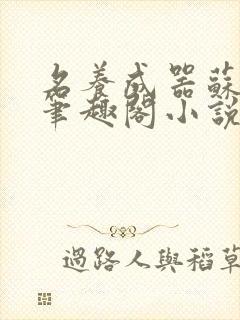 名養成器蘇
筆趣閣小說
過路人與稻草